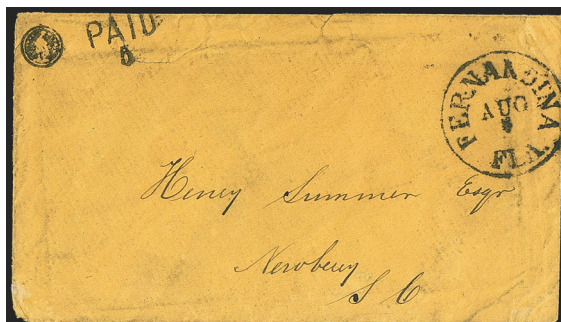 PAID
5
FERNANDINA
AUG
FLA.
Henry Summer Esqr
Newberry
S C